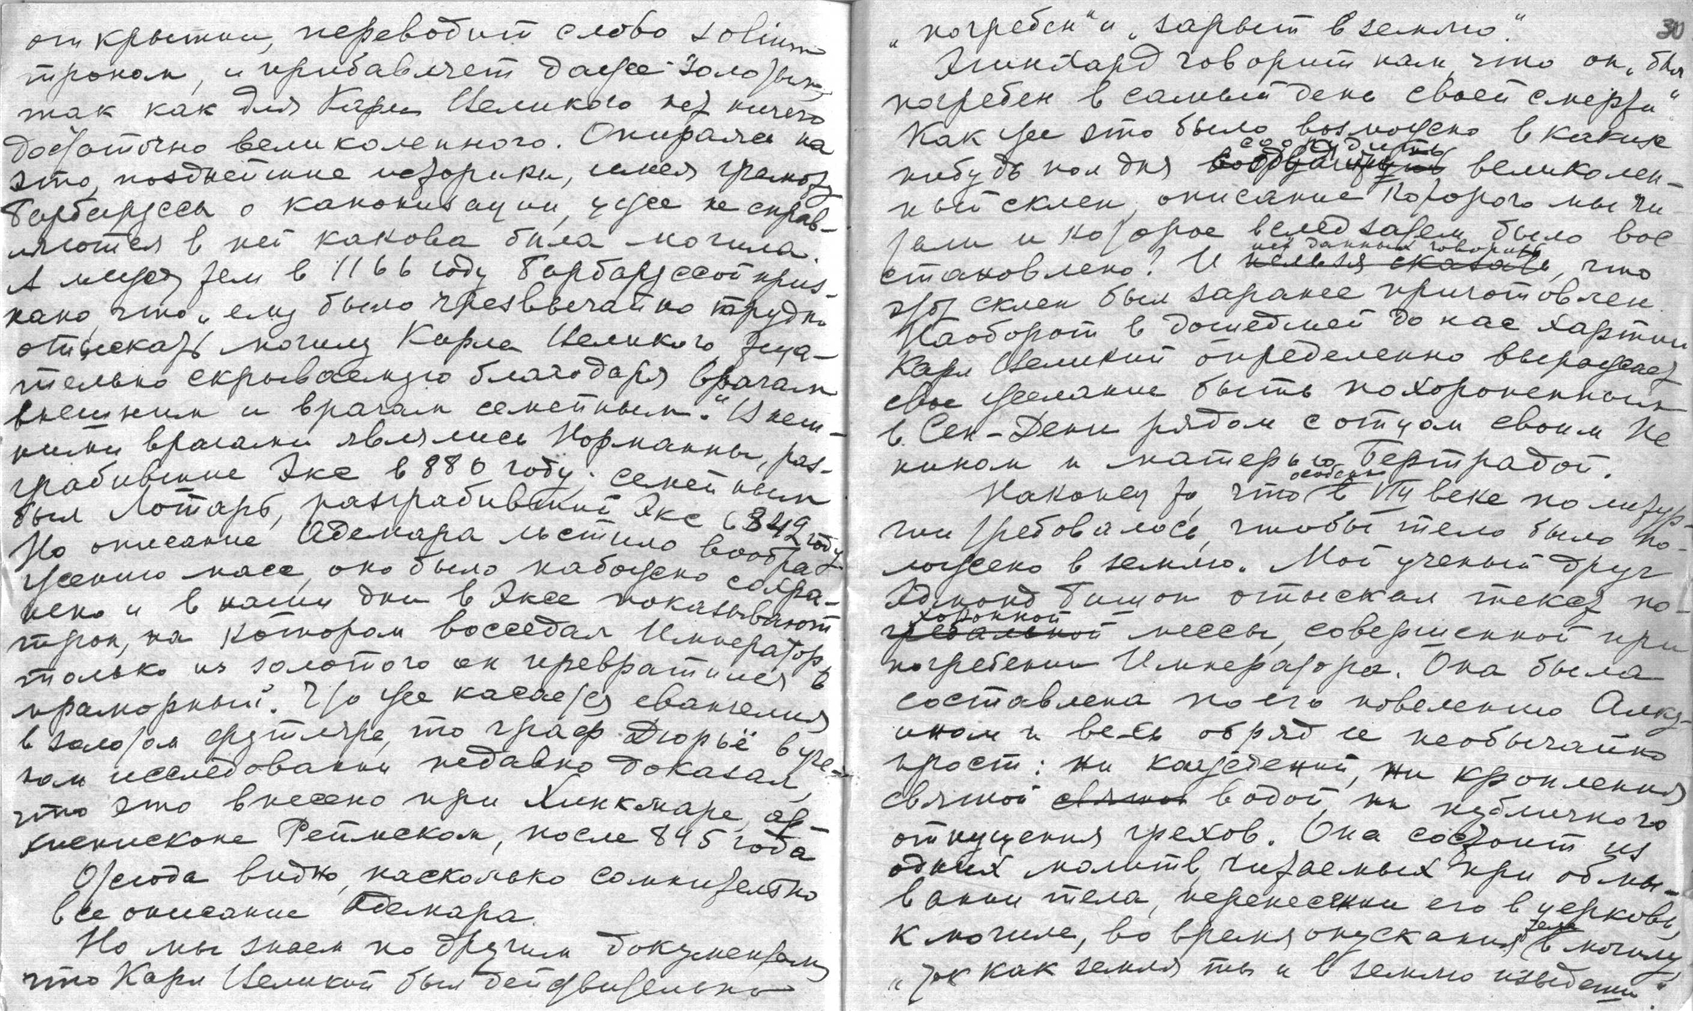 открытии, переводит слово solium
троном, и прибавляет даже золотым,
так как для Карла Великого нет ничего
достаточно великолепного. Опираясь на
это, позднейшие историки, имея грамоту
Барбаруссы о канонизации, уже не справ-
ляются в ней какова была могила.
А между тем в 1166 году Барбаруссой приз-
нано, что „ему было чрезвычайно трудно
отыскать могилу Карла Великого, тща-
тельно скрываемую благодаря врагам
внешним и врагам семейным." Внеш-
ними врагами являлись Норманны, раз-
грабившие Экс в 880 году; семейным
был Лотарь, разграбивший Экс в 842 году
Но описание Адемара льстило вообра-
жению масс, оно было набожно сохра-
нено и в наши дни в Эксе показывают
трон, на котором восседал Император,
только из золотого он превратился в
мраморный. Что же касается евангелия
в золотом футляре, то граф Дюрьё в уче-
ном исследовании недавно доказал,
что это внесено при Хинкмаре, ар-
хиепископе Реймском, после 845 года
Отсюда видно, насколько сомнительно
все описание Адемара.
Но мы знаем по другим документам,
что Карл Великий был действительно
30
„погребен" и „зарыт в землю".
Эгинхард говорит нам, что он „был
погребен в самый день своей смерти"
Как же это было возможно в какие
нибудь пол дня соорудить великолеп-
ный склеп, описание которого мы чи-
тали и которое вслед затем было вос
становлено? И нет данных говорить, что
этот склеп был заранее приготовлен.
Наоборот в дошедшей до нас хартии
Карл Великий определенно выражает
свое желание быть похороненным
в Сен-Дени рядом с отцом своим Пе
пином и матерью Бертрадой.
Наконец то, что особенно в IX веке по литур-
гии требовалось, чтобы тело было по-
ложено в землю. Мой ученый друг
Эдмонд Бишоп отыскал текст по-
хоронной мессы, совершенной при
погребении Императора. Она была
составлена по его повелению Алку-
ином и весь обряд ее необычайно
прост: ни каждений, ни кропления
святой водой, ни публичного
отпущения грехов. Она состоит из
одних молитв, читаемых при обмы-
вании тела, перенесении его в церковь,
к могиле, во время опускания тела в могилу,
„так как земля ты и в землю изыдеши".